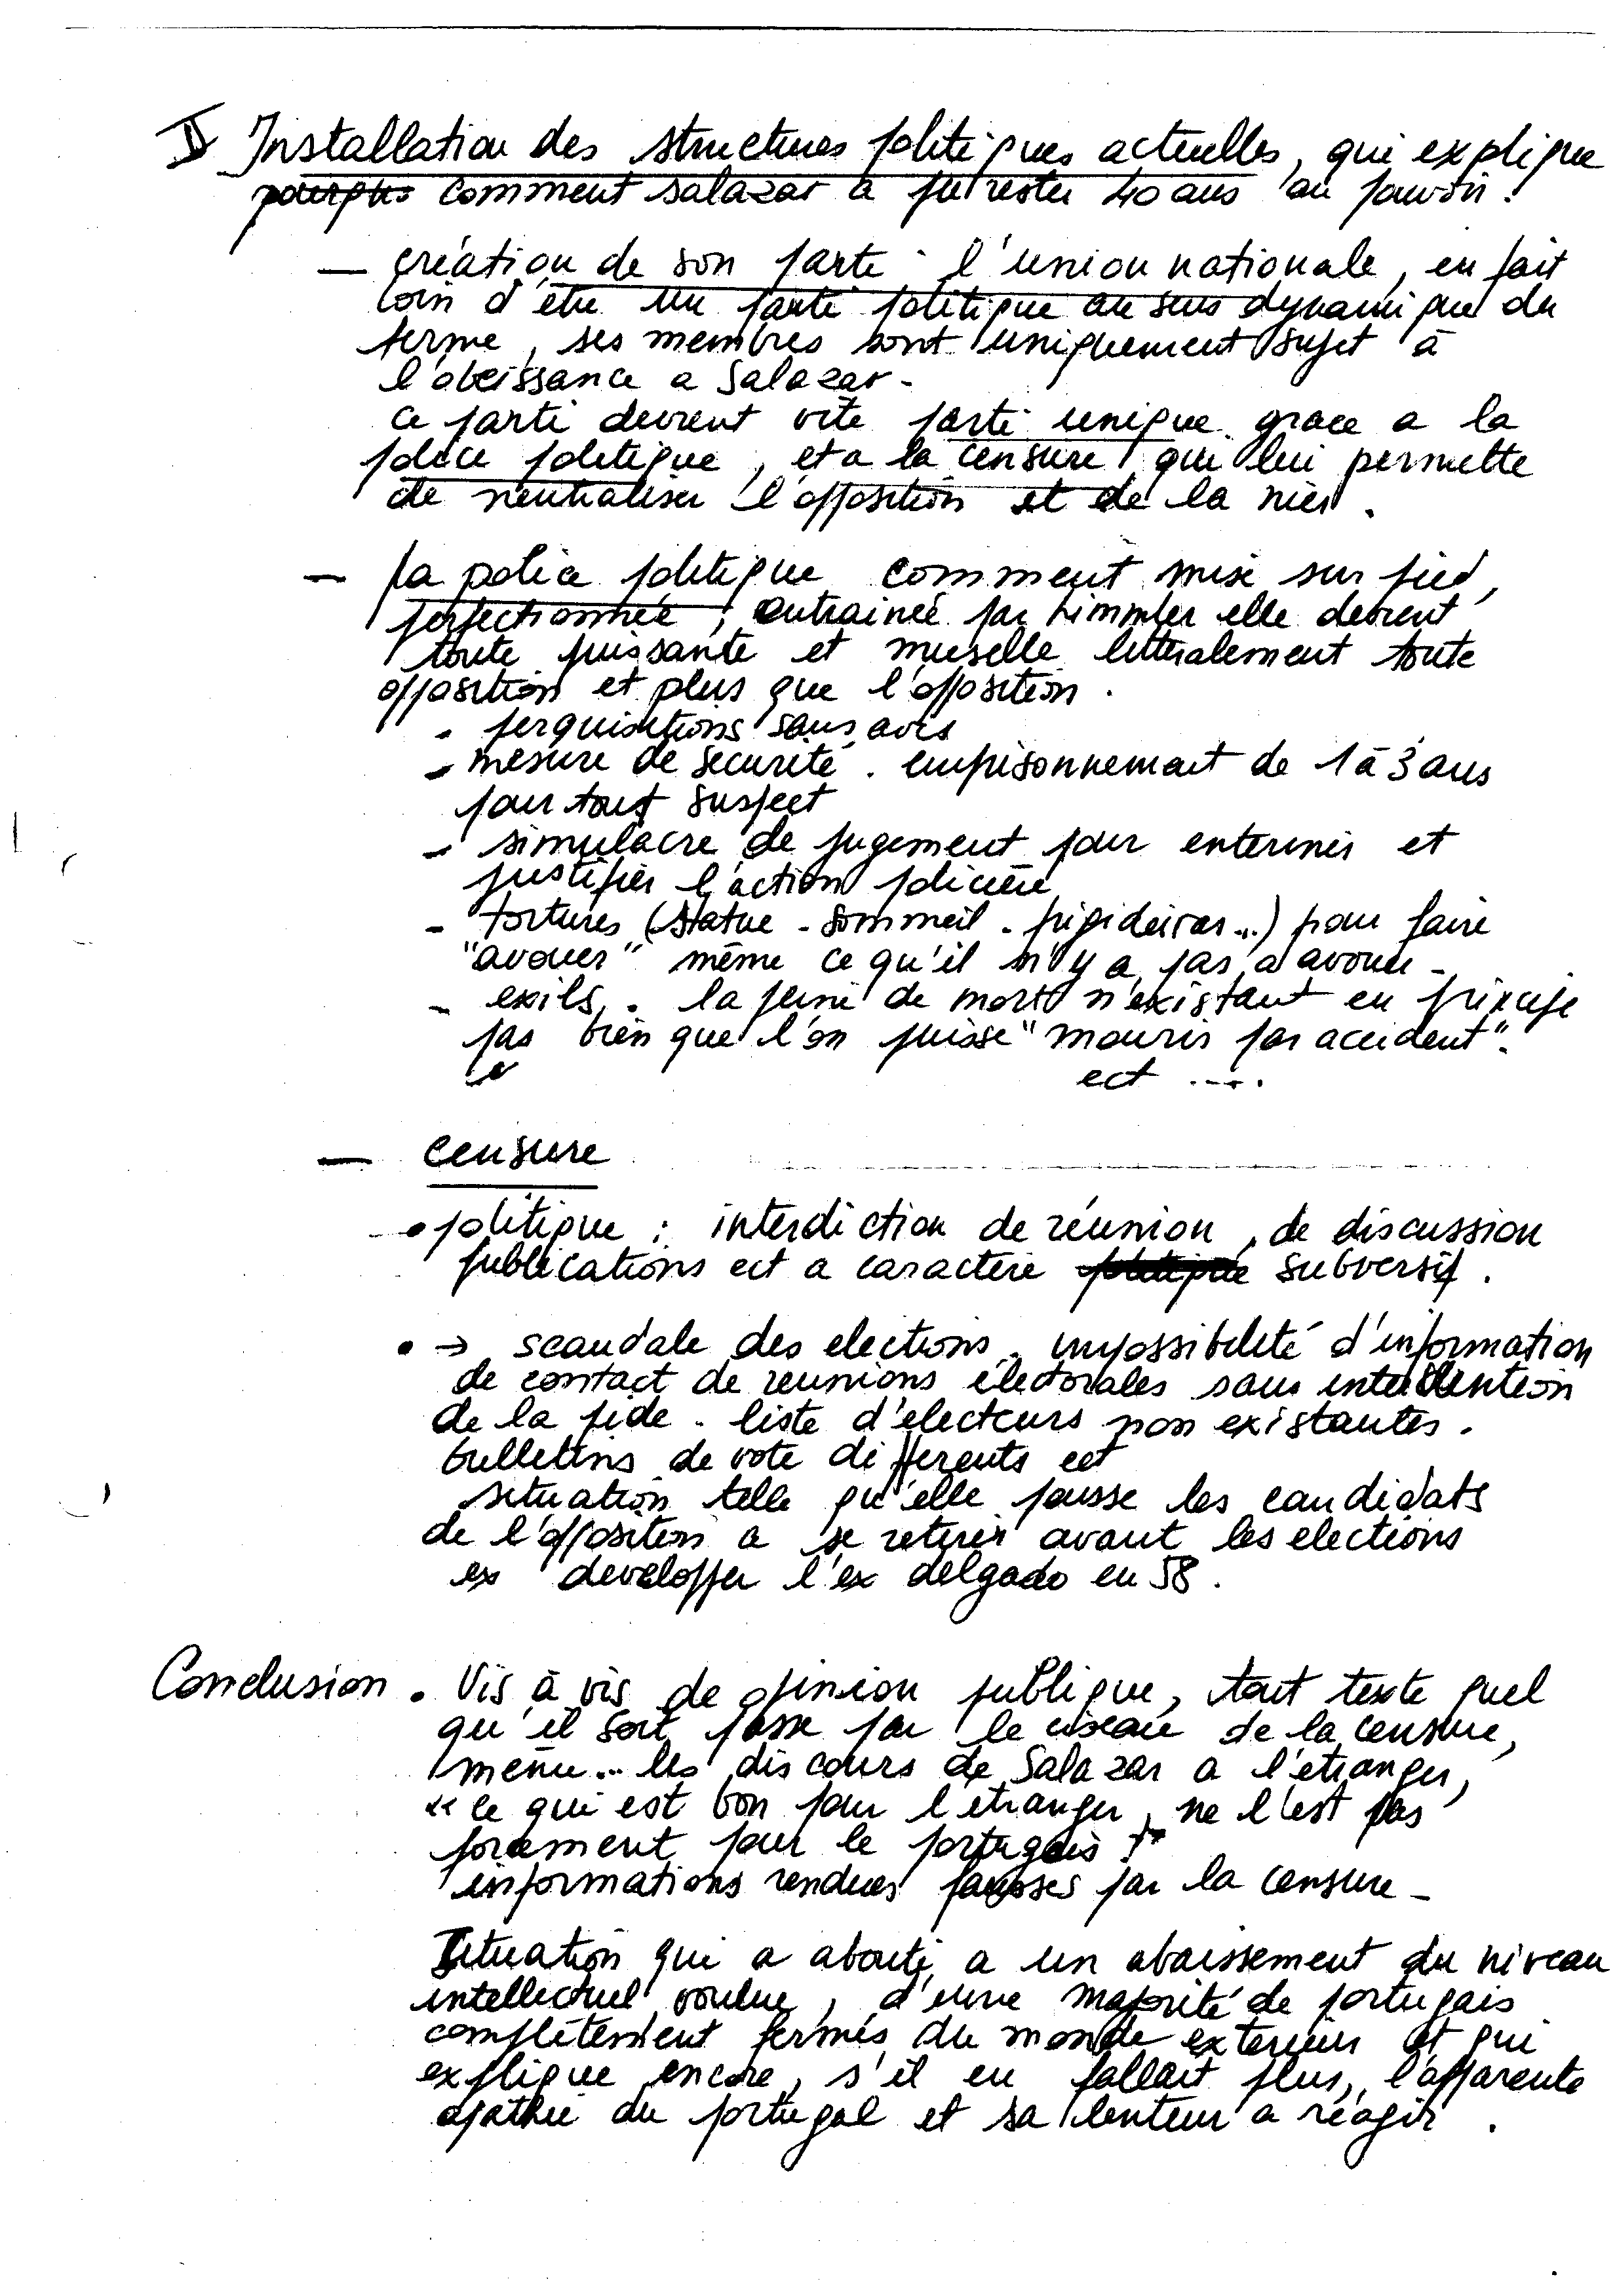 II Installation des structures politiques actuelles, qui explique
comment salazar a pu rester 40 ans au pouvoir.
— création de son parti : l'union nationale, en fait
loin d'être un parti politique au sens dynamique du
terme, ses membres sont uniquement sujet à
l'obeissance a Salazar -
ce parti devient vite parti unique grace a la
police politique, et a la censure qui lui permette
de neutraliser l'opposition et de la nier.
— la police politique comment mise sur pied,
perfectionnée, entrainée par himmler elle devient
toute puissante et muselle litteralement toute
opposition et plus que l'opposition.
- perquisitions sans avis
- mesure de securité. emprisonnement de 1 à 3 ans
pour tout suspect
- simulacre de jugement pour enteriner et
justifier l'action policière
- tortures (statue - sommeil - frigideiras...) pour faire
"avouer" même ce qu'il n'y a pas a avouer -
- exils. la peine de mort n'existant en principe
pas bien que l'on puisse "mourir par accident".
ect ....
— censure
• politique : interdiction de réunion, de discussion
publications ect a caractère subversif.
• → scandale des elections. impossibilité d'information
de contact de reunions électorales sans intervention
de la pide - liste d'électeurs non existantes.
bulletins de vote differents ect
situation telle qu'elle pousse les candidats
de l'opposition a se retirer avant les elections
ex developper l'ex delgado en 58.
Conclusion. Vis à vis de opinion publique, tout texte quel
qu'il soit passe par le ciseau de la censure,
même... les discours de Salazar a l'etranger,
"ce qui est bon pour l'etranger, ne l'est pas
forcement pour le portugais !"
informations rendues fausses par la censure -
Situation qui a abouti a un abaissement du niveau
intellectuel voulue, d'une majorité de portugais
complètement fermés du monde exterieur et qui
explique encore, s'il en fallait plus, l'apparente
apathie du portugal et sa lenteur a réagir.